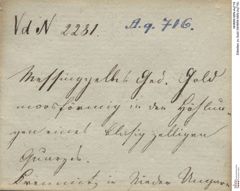 V d N 2231 A.g. 716.
Messinggelbes Ged. Gold
moosförmig in den Höhlun-
gen eines blasig zelligen
Quarzes.
Kremnitz in Nieder Ungarn.